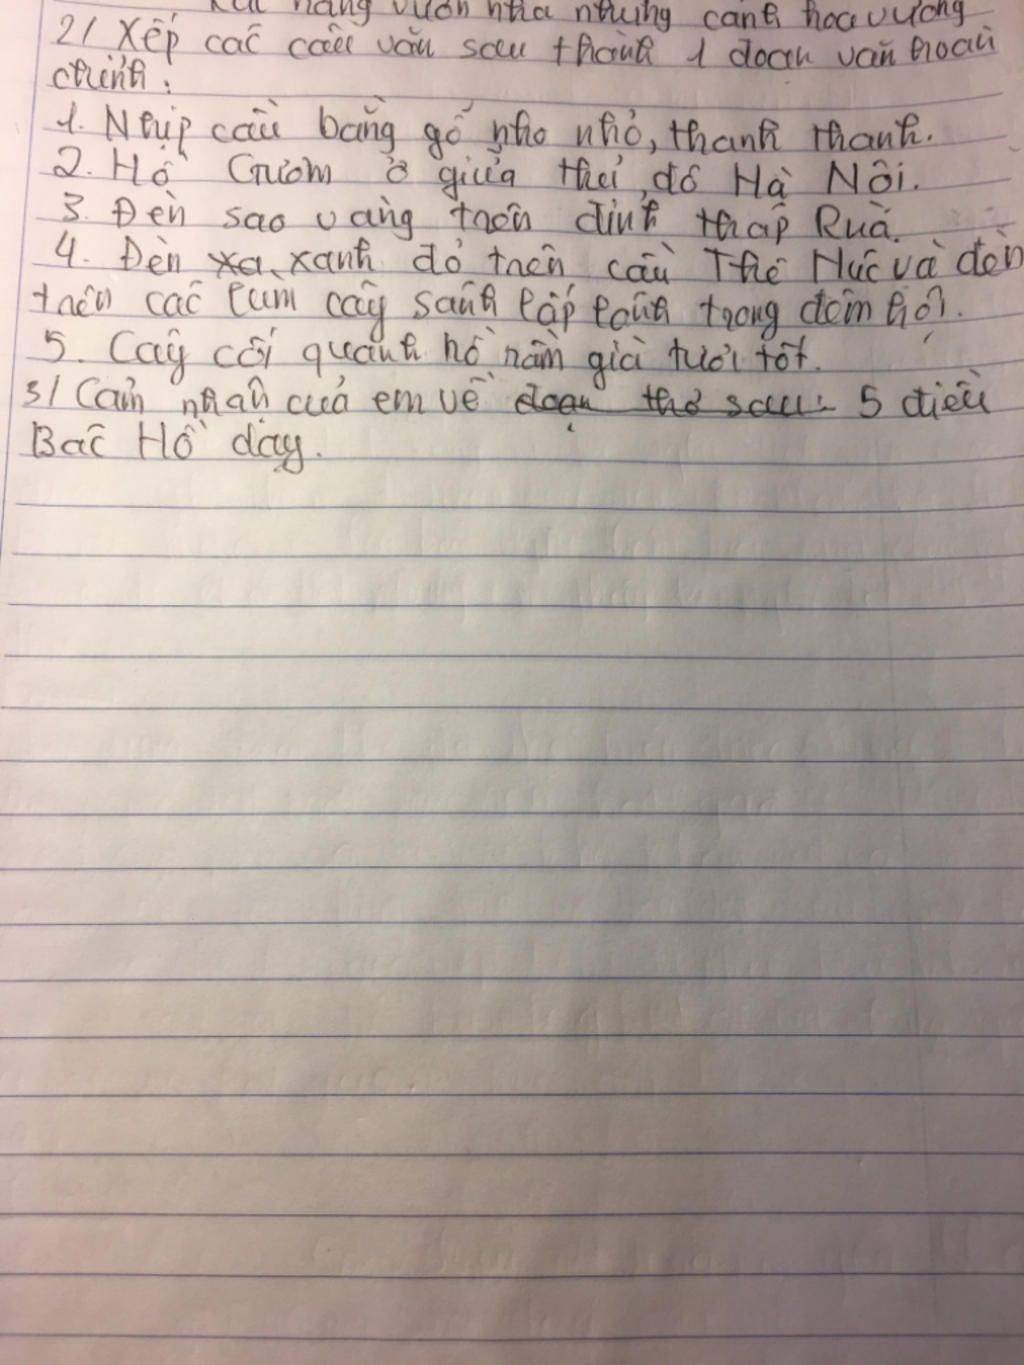 nắng vườn nhà những cánh hoa vương
2/ Xếp các câu văn sau thành 1 đoạn văn hoàn
chỉnh:
1. Nhịp cầu bằng gỗ nho nhỏ, thanh thanh.
2. Hồ Gươm ở giữa thủ đô Hà Nội.
3. Đèn sao vàng trên đỉnh tháp Rùa.
4. Đèn xa, xanh đỏ trên cầu Thê Húc và đèn
trên các lùm cây sánh lấp lánh trong đêm hội.
5. Cây cối quanh hồ năm già tươi tốt.
3/ Cảm nhận của em về đoạn thơ sau: 5 điều
Bác Hồ dạy.